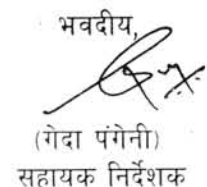 भवदीय,
(गेदा पंगेनी)
सहायक निर्देशक